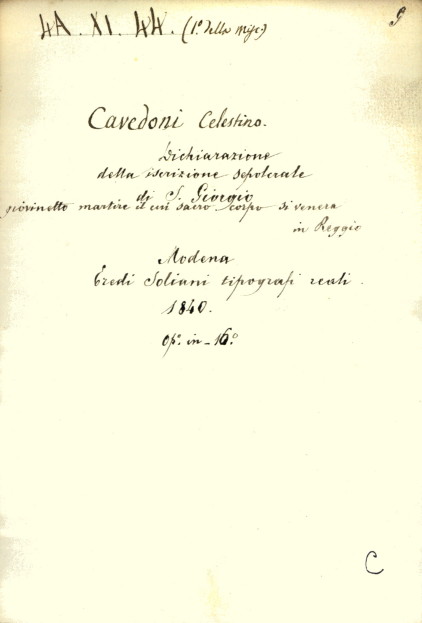 4A. XI. 44. (1º della Misc.)
9
Cavedoni Celestino.
Dichiarazione
della iscrizione sepolcrale
di S. Giorgio
giovinetto martire il cui sacro corpo si venera
in Reggio
Modena
Eredi Soliani tipografi reali.
1840.
Opº. in-16º
C